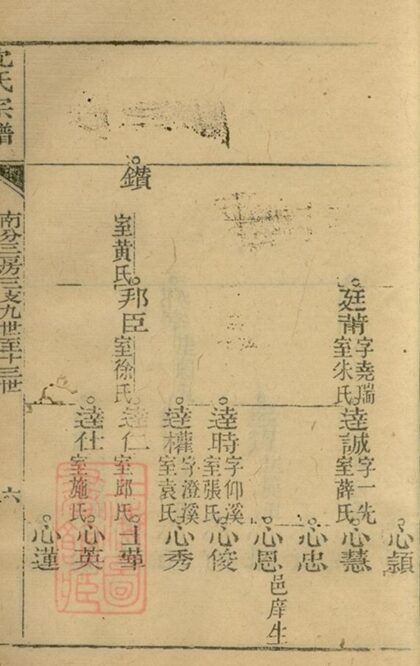 沈氏宗譜
南分三房三支九世至十三世
六
心頴
廷莆字堯瑞室朱氏
逵誠字一先室薛氏
心慧
心忠
心恩邑庠生
逵時字仰溪室張氏
心俊
逵權字澄溪室袁氏
心秀
鑽室黃氏
邦臣室徐氏
逵仁室邱氏
逵仕室施氏
心英
心蓮